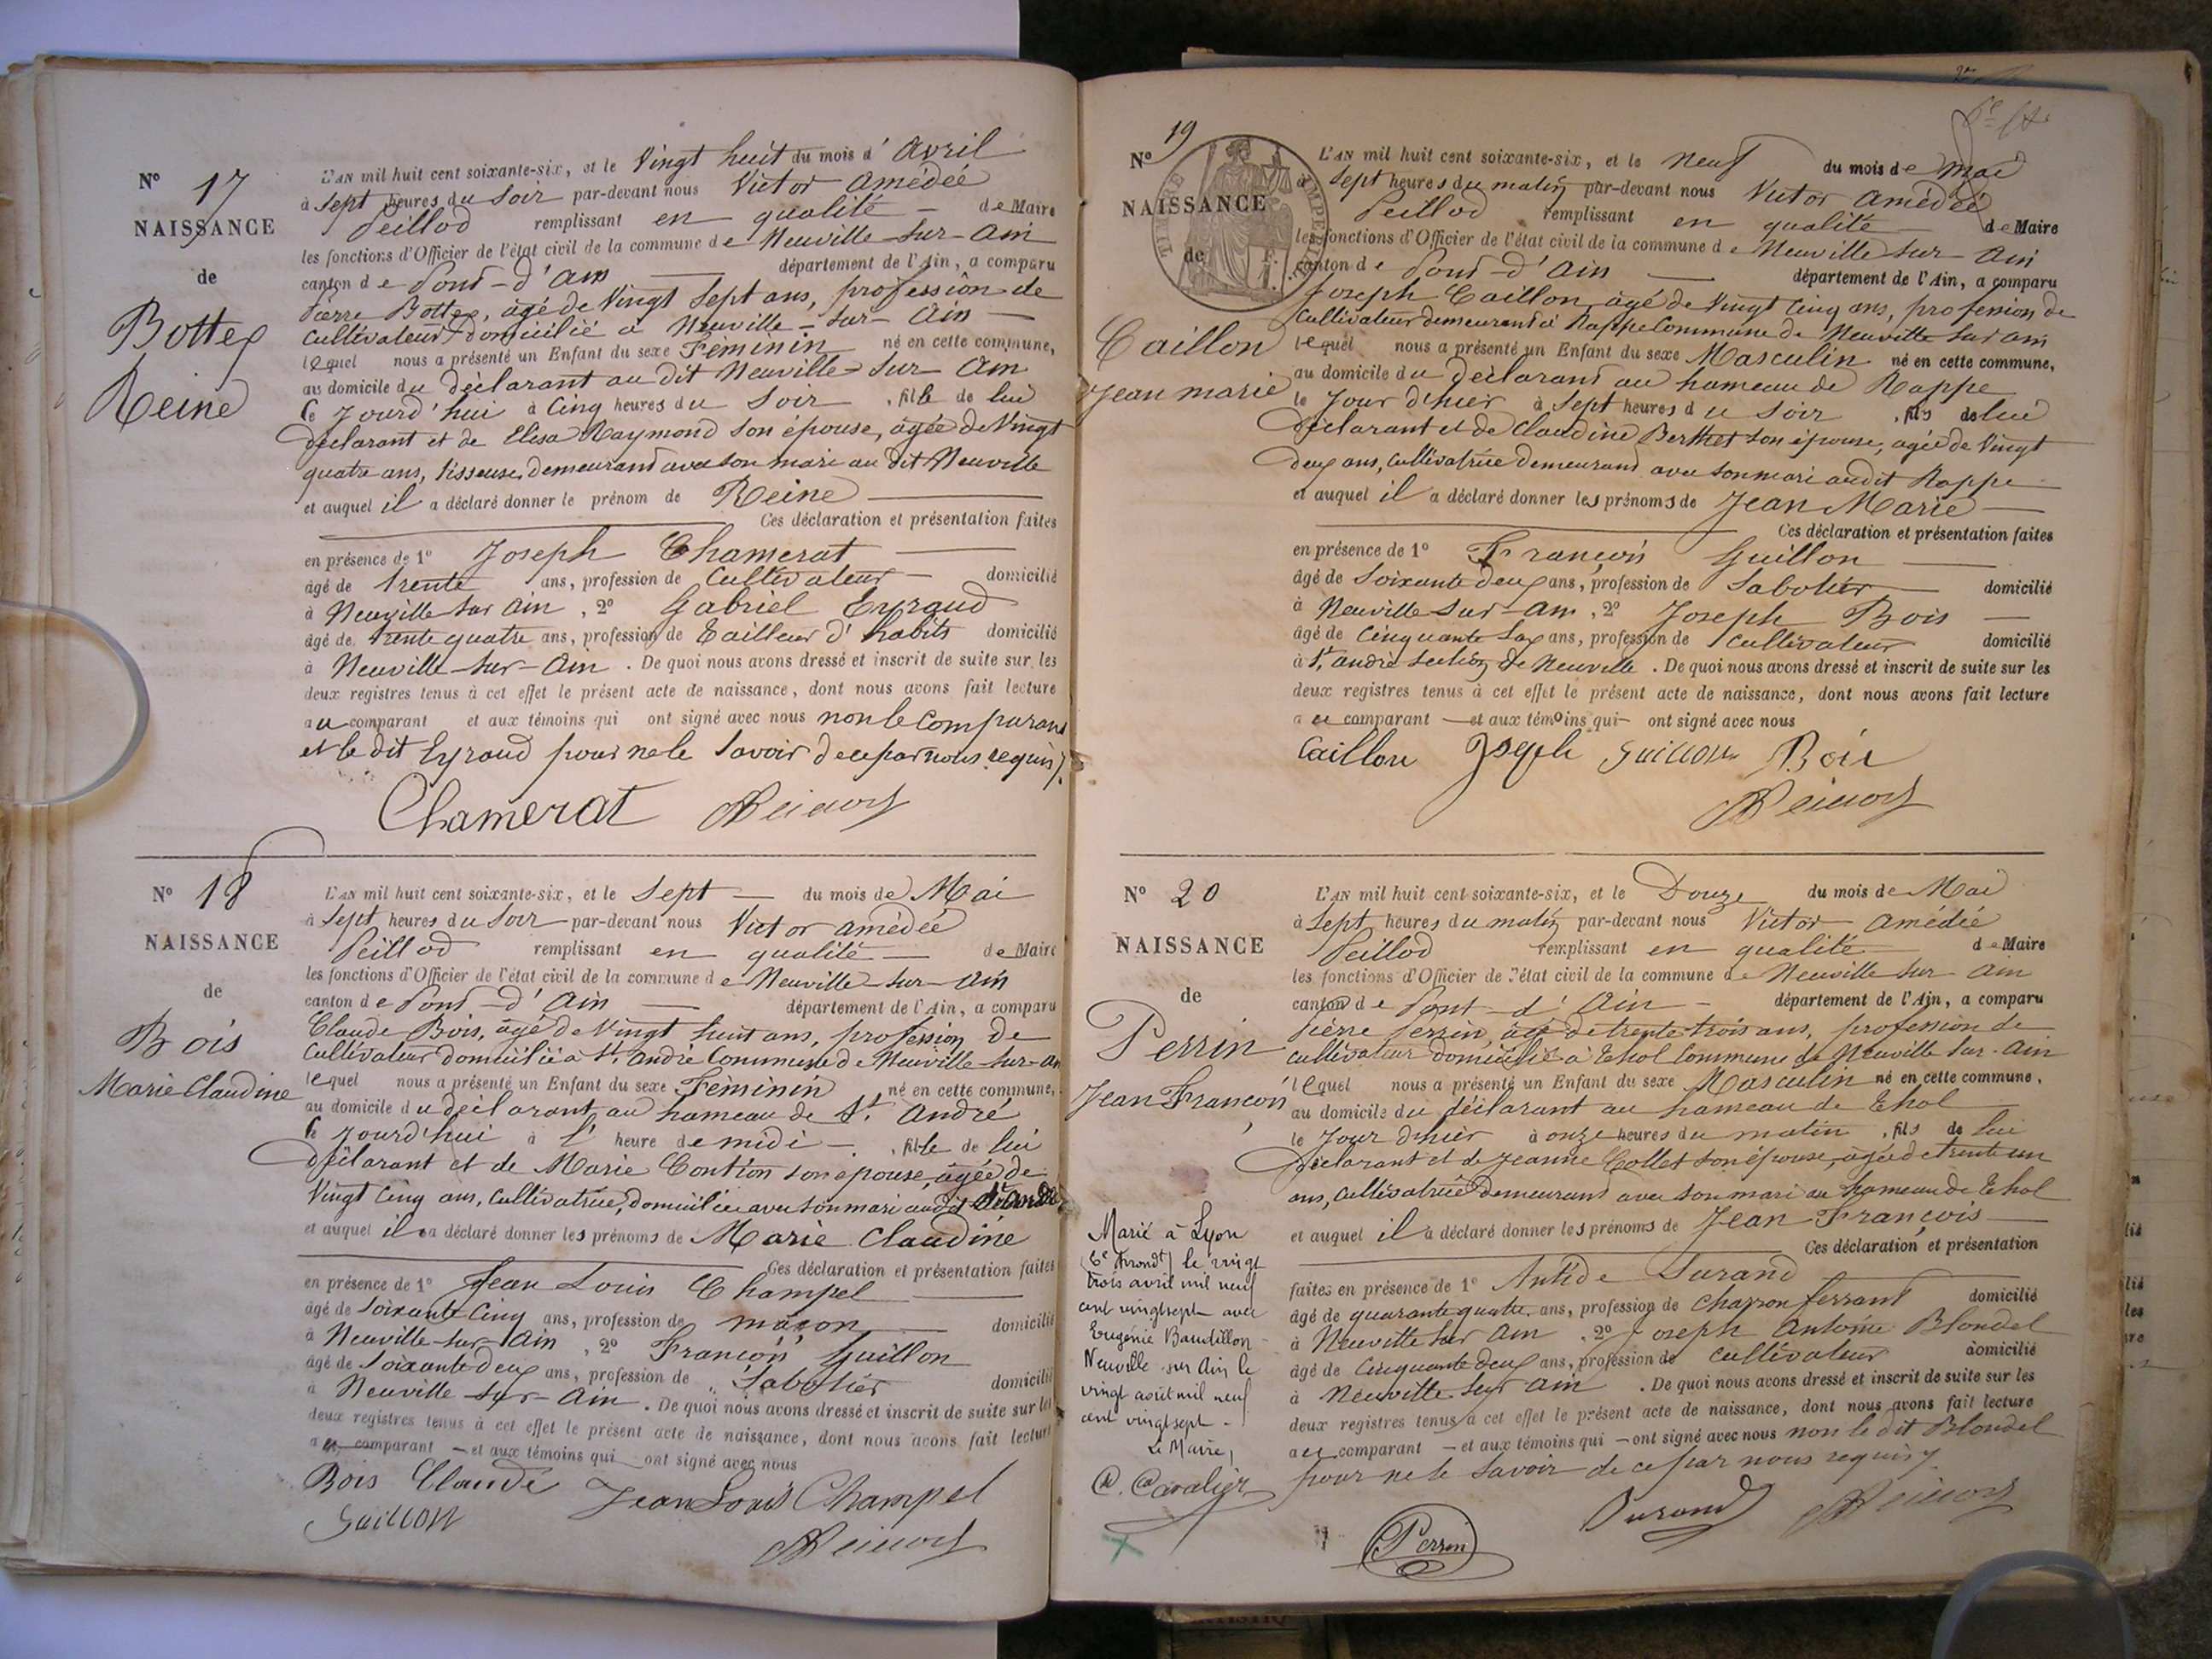 N° 17
NAISSANCE
de
Bottex
Reine
L'AN mil huit cent soixante-six, et le Vingt huit du mois d'Avril
à Sept heures du Soir par-devant nous Victor Amédée
Peillod remplissant en qualité de Maire
les fonctions d'Officier de l'état civil de la commune de Neuville-sur-Ain
canton de Pont-d'Ain département de l'Ain, a comparu
Pierre Bottex, âgé de Vingt Sept ans, profession de
Cultivateur domicilié à Neuville-sur-Ain
lequel nous a présenté un Enfant du sexe Féminin né en cette commune,
au domicile du déclarant au dit Neuville-sur-Ain
ce jourd'hui à Cinq heures du Soir, fille de lui
déclarant et de Elisa Raymond son épouse, âgée de Vingt
quatre ans, tisseuse, demeurant avec son mari au dit Neuville
et auquel il a déclaré donner le prénom de Reine
Ces déclaration et présentation faites
en présence de 1° Joseph Chamerat
âgé de trente ans, profession de Cultivateur domicilié
à Neuville sur Ain, 2° Gabriel Eyraud
âgé de trente quatre ans, profession de Tailleur d'habits domicilié
à Neuville-sur-Ain. De quoi nous avons dressé et inscrit de suite sur les
deux registres tenus à cet effet le présent acte de naissance, dont nous avons fait lecture
au comparant et aux témoins qui ont signé avec nous non le comparant
et le dit Eyraud pour ne le savoir de ce par nous requis.
Chamerat
N° 18
NAISSANCE
de
Bois
Marie Claudine
L'AN mil huit cent soixante-six, et le Sept du mois de Mai
à Sept heures du Soir par-devant nous Victor Amédée
Peillod remplissant en qualité de Maire
les fonctions d'Officier de l'état civil de la commune de Neuville-sur-Ain
canton de Pont-d'Ain département de l'Ain, a comparu
Claude Bois, âgé de Vingt huit ans, profession de
Cultivateur domicilié à St. André Commune de Neuville-sur-Ain
lequel nous a présenté un Enfant du sexe Féminin né en cette commune,
au domicile du déclarant au hameau de St. André
ce jourd'hui à l'heure de midi, fille de lui
déclarant et de Marie Contion son épouse, âgée de
Vingt Cinq ans, Cultivatrice, domiciliée avec son mari audit St. André
et auquel il a déclaré donner les prénoms de Marie Claudine
Ces déclaration et présentation faites
en présence de 1° Jean Louis Champel
âgé de Soixante Cinq ans, profession de maçon domicilié
à Neuville-sur-Ain, 2° François Guillon
âgé de Soixante deux ans, profession de Sabotier domicilié
à Neuville-sur-Ain. De quoi nous avons dressé et inscrit de suite sur les
deux registres tenus à cet effet le présent acte de naissance, dont nous avons fait lecture
au comparant et aux témoins qui ont signé avec nous
Bois Claude Jean Louis Champel
Guillon
N° 19
NAISSANCE
de
Caillon
Jean marie
L'AN mil huit cent soixante-six, et le Neuf du mois de Mai
à Sept heures du matin par-devant nous Victor Amédée
Peillod remplissant en qualité de Maire
les fonctions d'Officier de l'état civil de la commune de Neuville sur Ain
canton de Pont-d'Ain département de l'Ain, a comparu
Joseph Caillon, âgé de Vingt Cinq ans, profession de
Cultivateur demeurant à Rappe Commune de Neuville sur Ain
lequel nous a présenté un Enfant du sexe Masculin né en cette commune,
au domicile du déclarant au hameau de Rappe
le Jour d'hier à Sept heures du Soir, fils de lui
déclarant et de Claudine Berthet son épouse, agée de Vingt
deux ans, Cultivatrice demeurant avec son mari audit Rappe
et auquel il a déclaré donner les prénoms de Jean Marie
Ces déclaration et présentation faites
en présence de 1° François Guillon
âgé de Soixante deux ans, profession de Sabotier domicilié
à Neuville-sur-Ain, 2° Joseph Bois
âgé de Cinquante Six ans, profession de Cultivateur domicilié
à St. andré section de Neuville. De quoi nous avons dressé et inscrit de suite sur les
deux registres tenus à cet effet le présent acte de naissance, dont nous avons fait lecture
au comparant et aux témoins qui ont signé avec nous
Caillon Joseph Guillon Bois
N° 20
NAISSANCE
de
Perrin
Jean François
L'AN mil huit cent soixante-six, et le Douze du mois de Mai
à Sept heures du matin par-devant nous Victor Amédée
Peillod remplissant en qualité de Maire
les fonctions d'Officier de l'état civil de la commune de Neuville sur Ain
canton de Pont-d'Ain département de l'Ain, a comparu
Pierre Perrin, âgé de trente trois ans, profession de
cultivateur domicilié à Thol Commune de Neuville sur Ain
lequel nous a présenté un Enfant du sexe Masculin né en cette commune,
au domicile du déclarant au hameau de Thol
le Jour d'hier à onze heures du matin, fils de lui
déclarant et de Jeanne Collet son épouse, âgée de trente un
ans, Cultivatrice demeurant avec son mari au hameau de Thol
et auquel il a déclaré donner les prénoms de Jean François
Ces déclaration et présentation
faites en présence de 1° Antide Durand
âgé de quarante quatre ans, profession de Charron ferrant domicilié
à Neuville sur Ain, 2° Joseph Antoine Blondel
âgé de Cinquante deux ans, profession de Cultivateur domicilié
à Neuville sur Ain. De quoi nous avons dressé et inscrit de suite sur les
deux registres tenus à cet effet le présent acte de naissance, dont nous avons fait lecture
au comparant et aux témoins qui ont signé avec nous non le dit Blondel
pour ne le savoir de ce par nous requis.
Durand
Perrin
Marié à Lyon
(6e Arrondt) le vingt
trois avril mil neuf
cent vingt sept avec
Eugénie Baudillon
Neuville sur Ain le
vingt août mil neuf
cent vingt sept
Le Maire,
Cavalier